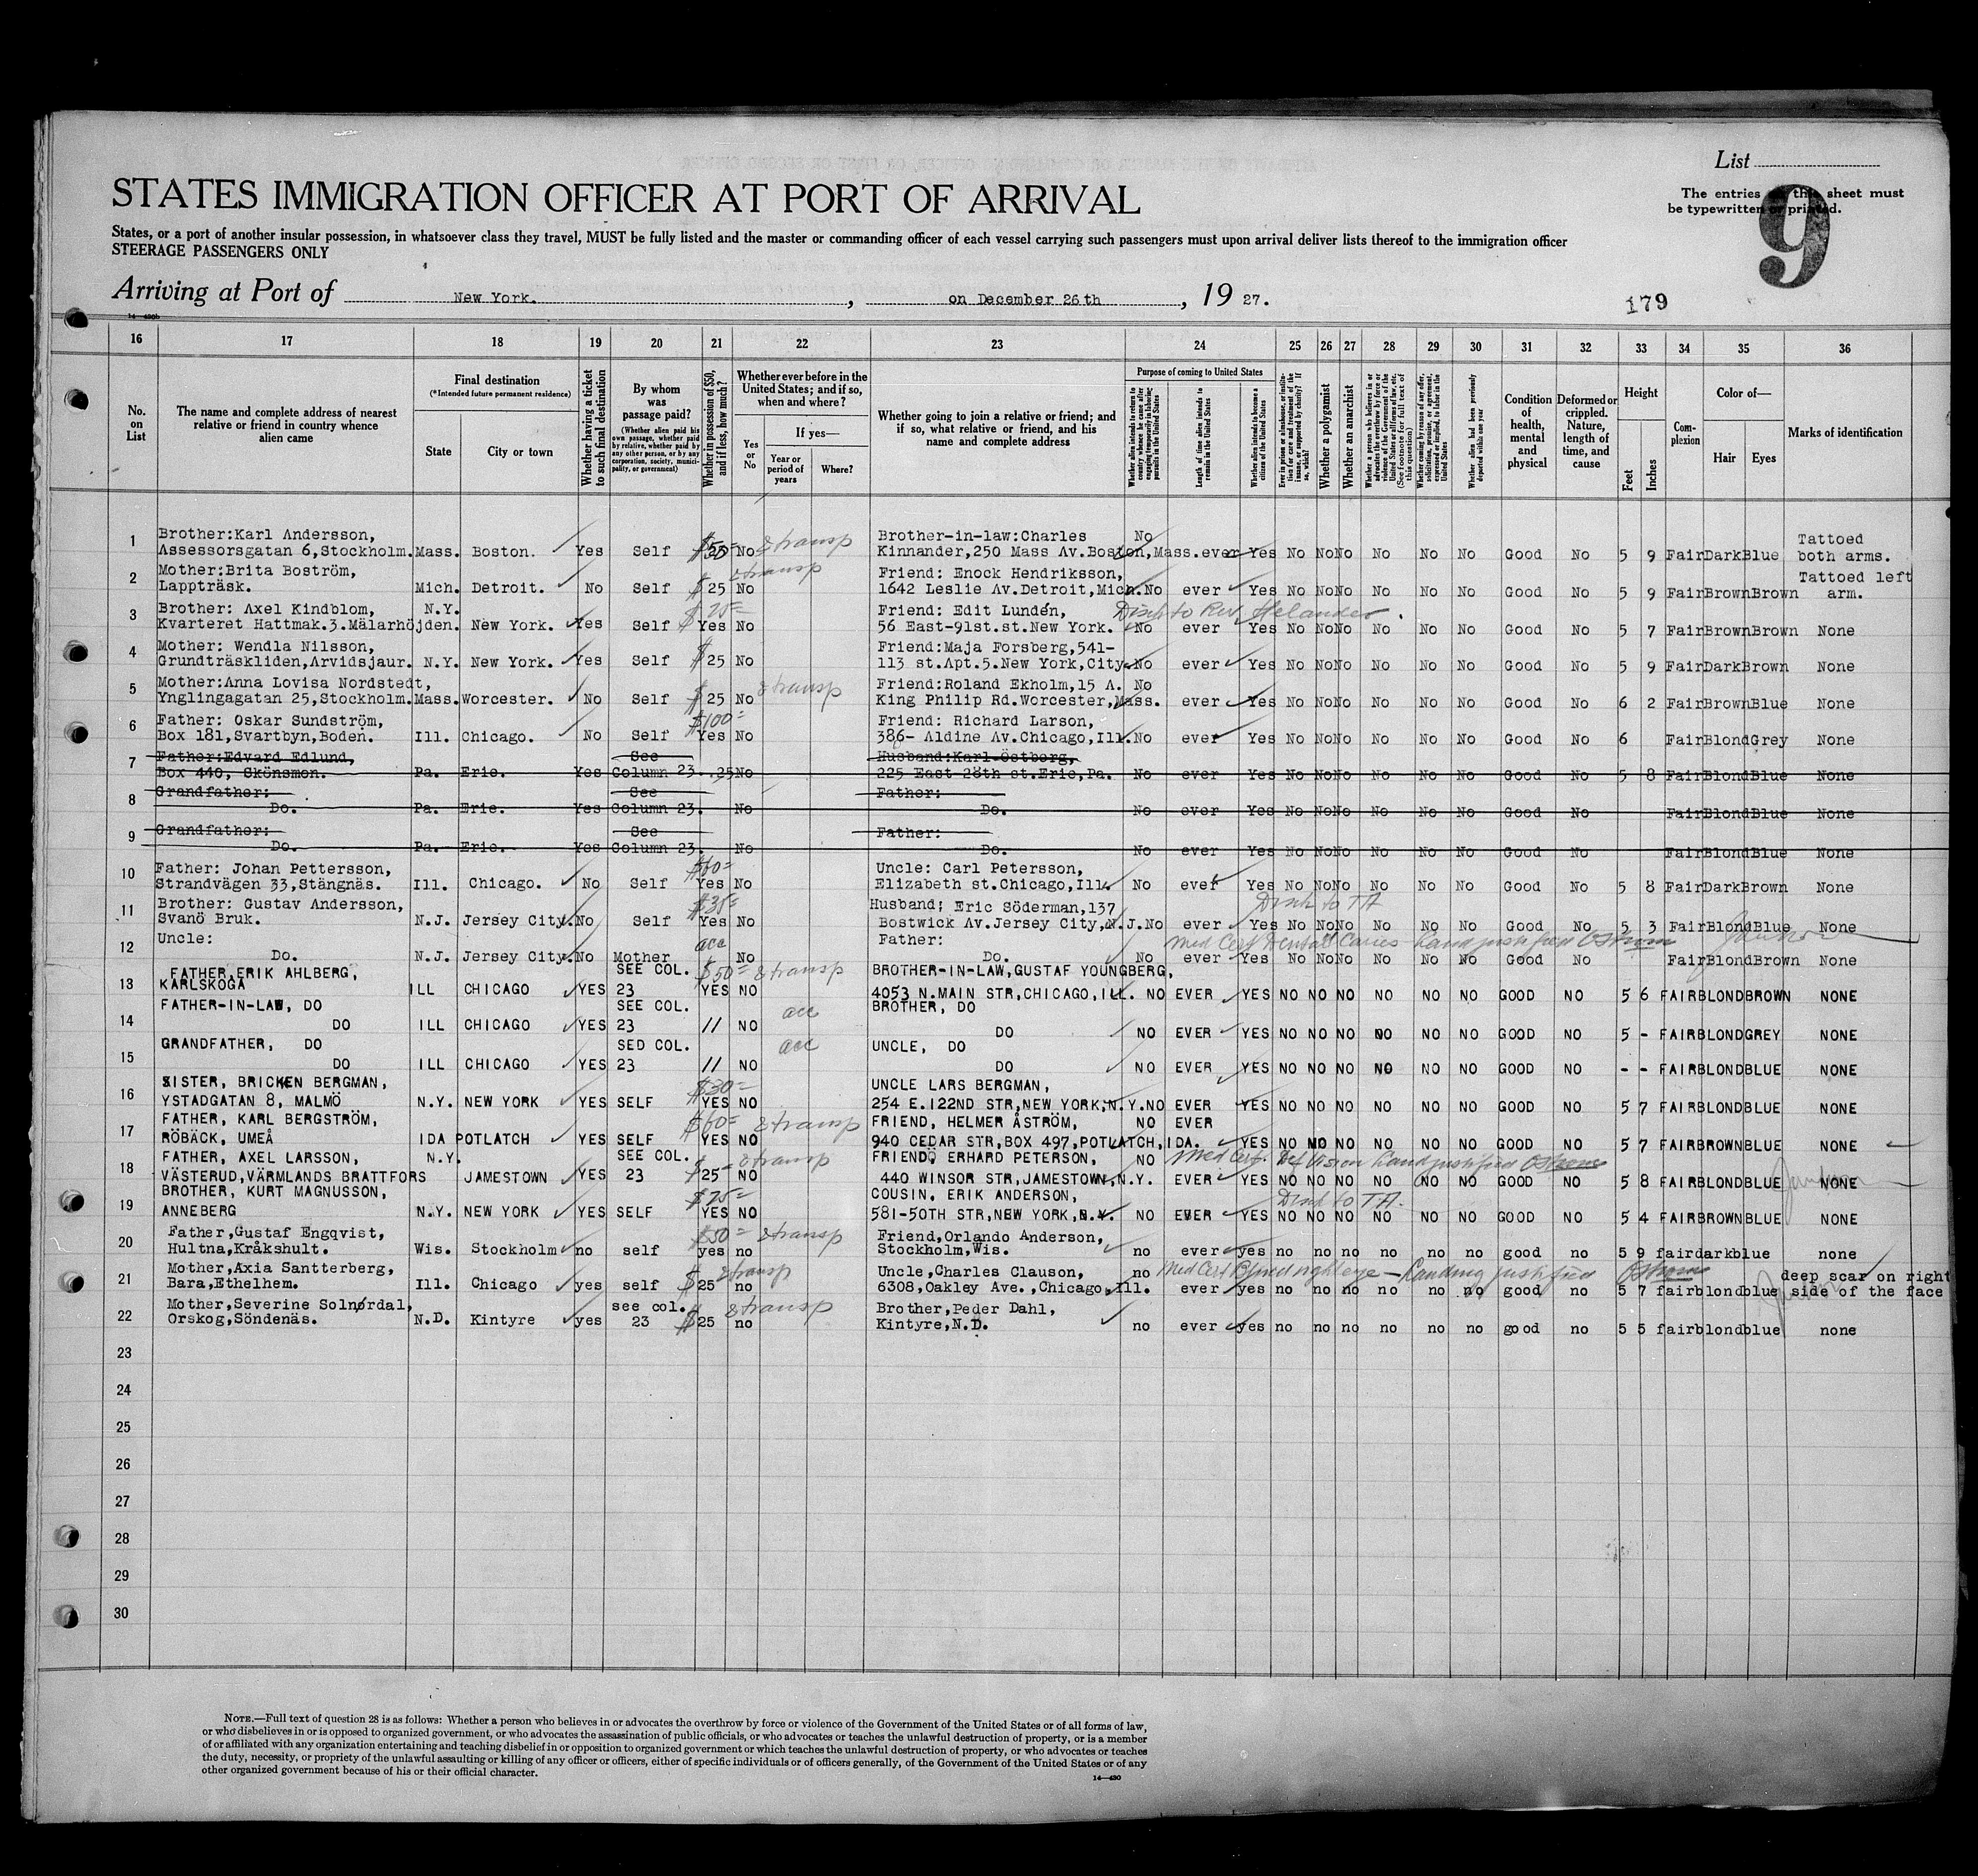 List
The entries on this sheet must
be typewritten or printed.
9
STATES IMMIGRATION OFFICER AT PORT OF ARRIVAL
States, or a port of another insular possession, in whatsoever class they travel, MUST be fully listed and the master or commanding officer of each vessel carrying such passengers must upon arrival deliver lists thereof to the immigration officer
STEERAGE PASSENGERS ONLY
Arriving at Port of New York. , on December 26th , 19 27.
179
16 17 18 19 20 21 22 23 24 25 26 27 28 29 30 31 32 33 34 35 36
No. on List
The name and complete address of nearest relative or friend in country whence alien came
Final destination
(*Intended future permanent residence)
State
City or town
Whether having a ticket to such final destination
By whom was passage paid?
(Whether alien paid his own passage, whether paid by relative, whether paid by any other person, or by any corporation, society, municipality, or government)
Whether in possession of $50, and if less, how much?
Whether ever before in the United States; and if so, when and where?
Yes or No
If yes—
Year or period of years
Where?
Whether going to join a relative or friend; and if so, what relative or friend, and his name and complete address
Purpose of coming to United States
Length of time alien intends to remain in the United States
Whether alien intends to become a citizen of the United States
Whether a polygamist
Whether an anarchist
Condition of health, mental and physical
Deformed or crippled. Nature, length of time, and cause
Height
Feet
Inches
Complexion
Color of—
Hair
Eyes
Marks of identification
1 Brother:Karl Andersson, Brother-in-law:Charles No Tattoed
Assessorsgatan 6,Stockholm. Mass. Boston. Yes Self $50 No & transp Kinnander,250 Mass Av.Boston,Mass. ever Yes No No No No No No Good No 5 9 Fair Dark Blue both arms.
2 Mother:Brita Boström, & transp Friend: Enock Hendriksson, Tattoed left
Lappträsk. Mich. Detroit. No Self $25 No 1642 Leslie Av.Detroit,Mich. No ever Yes No No No No No No Good No 5 9 Fair Brown Brown arm.
3 Brother: Axel Kindblom, N.Y. Friend: Edit Lundén, Disch to Rev. Helander.
Kvarteret Hattmak.3.Mälarhöjden. New York. Yes Self Yes No 56 East-91st.st.New York. No ever Yes No No No No No No Good No 5 7 Fair Brown Brown None
4 Mother: Wendla Nilsson, Friend:Maja Forsberg,541-
Grundträskliden,Arvidsjaur. N.Y. New York. Yes Self $25 No 113 st.Apt.5.New York,City. No ever Yes No No No No No No Good No 5 9 Fair Dark Brown None
5 Mother:Anna Lovisa Nordstedt, & transp Friend:Roland Ekholm,15 A. No
Ynglingagatan 25,Stockholm. Mass. Worcester. No Self $25 No King Philip Rd.Worcester,Mass. ever Yes No No No No No No Good No 6 2 Fair Brown Blue None
6 Father: Oskar Sundström, $100= Friend: Richard Larson,
Box 181,Svartbyn,Boden. Ill. Chicago. No Self Yes No 386- Aldine Av.Chicago,Ill. No ever Yes No No No No No No Good No 6 Fair Blond Grey None
7 Father:Edvard Edlund, See Husband:Karl Östberg,
Box 440, Skönsmon. Pa. Erie. Yes Column 23. 25 No 225 East 28th st.Erie,Pa. No ever Yes No No No No No No Good No 5 8 Fair Blond Blue None
8 Grandfather: See Father:
Do. Pa. Erie. Yes Column 23. No Do. No ever Yes No No No No No No Good No Fair Blond Blue None
9 Grandfather: See Father:
Do. Pa. Erie. Yes Column 23. No Do. No ever Yes No No No No No No Good No Fair Blond Blue None
10 Father: Johan Pettersson, $60= Uncle: Carl Petersson,
Strandvägen 33,Stängnäs. Ill. Chicago. No Self Yes No Elizabeth st.Chicago,Ill. No ever Yes No No No No No No Good No 5 8 Fair Dark Brown None
11 Brother: Gustav Andersson, $35= Husband: Eric Söderman,137 Disch to TA
Svanö Bruk. N.J. Jersey City. No Self Yes No Bostwick Av.Jersey City,N.J. No ever Yes No No No No No No Good No 5 3 Fair Blond Blue None
12 Uncle: acc Father: Med Cert Dental Caries - Landing justified
Do. N.J. Jersey City. No Mother No Do. No ever Yes No No No No No No Good No Fair Blond Brown None
13 FATHER,ERIK AHLBERG, SEE COL. $50= & transp BROTHER-IN-LAW,GUSTAF YOUNGBERG,
KARLSKOGA ILL CHICAGO YES 23 YES NO 4053 N.MAIN STR,CHICAGO,ILL. NO EVER YES NO NO NO NO NO NO GOOD NO 5 6 FAIR BLOND BROWN NONE
14 FATHER-IN-LAW, DO SEE COL. acc BROTHER, DO
DO ILL CHICAGO YES 23 // NO DO NO EVER YES NO NO NO NO NO NO GOOD NO 5 - FAIR BLOND GREY NONE
15 GRANDFATHER, DO SED COL. acc UNCLE, DO
DO ILL CHICAGO YES 23 // NO DO NO EVER YES NO NO NO NO NO NO GOOD NO - - FAIR BLOND BLUE NONE
16 SISTER, BRICKEN BERGMAN, $30= UNCLE LARS BERGMAN,
YSTADGATAN 8, MALMÖ N.Y. NEW YORK YES SELF YES NO 254 E.122ND STR,NEW YORK,N.Y. NO EVER YES NO NO NO NO NO NO GOOD NO 5 7 FAIR BLOND BLUE NONE
17 FATHER, KARL BERGSTRÖM, $60= & transp FRIEND, HELMER ÅSTRÖM, NO EVER
RÖBÄCK, UMEÅ IDA POTLATCH YES SELF YES NO 940 CEDAR STR,BOX 497,POTLATCH,IDA. YES NO NO NO NO NO NO GOOD NO 5 7 FAIR BROWN BLUE NONE
18 FATHER, AXEL LARSSON, N.Y. SEE COL. & transp FRIENDÖ ERHARD PETERSON, NO Med Cert. Def Vision Landing justified
VÄSTERUD,VÄRMLANDS BRATTFORS JAMESTOWN YES 23 $25 NO 440 WINSOR STR,JAMESTOWN,N.Y. EVER YES NO NO NO NO NO NO GOOD NO 5 8 FAIR BLOND BLUE NONE
19 BROTHER, KURT MAGNUSSON, $75= COUSIN, ERIK ANDERSON, Disch to TA.
ANNEBERG N.Y. NEW YORK YES SELF YES NO 581-50TH STR,NEW YORK,N.Y. NO EVER YES NO NO NO NO NO NO GOOD NO 5 4 FAIR BROWN BLUE NONE
20 Father,Gustaf Engqvist, $50= & transp Friend,Orlando Anderson,
Hultna,Kråkshult. Wis. Stockholm no self yes no Stockholm,Wis. no ever yes no no no no no no good no 5 9 fair dark blue none
21 Mother,Axia Santterberg, & transp Uncle,Charles Clauson, no Med Cert Blind right eye - Landing justified deep scar on right
Bara,Ethelhem. Ill. Chicago yes self $25 no 6308,Oakley Ave.,Chicago,Ill. ever yes no no no no no no good no 5 7 fair blond blue side of the face
22 Mother,Severine Solnørdal, see col. & transp Brother,Peder Dahl,
Orskog,Söndenäs. N.D. Kintyre yes 23 $25 no Kintyre,N.D. no ever yes no no no no no no good no 5 5 fair blond blue none
23
24
25
26
27
28
29
30
NOTE.—Full text of question 28 is as follows: Whether a person who believes in or advocates the overthrow by force or violence of the Government of the United States or of all forms of law,
or who disbelieves in or is opposed to organized government, or who advocates the assassination of public officials, or who advocates or teaches the unlawful destruction of property, or is a member
of or affiliated with any organization entertaining and teaching disbelief in or opposition to organized government or which teaches the unlawful destruction of property, or who advocates or teaches
the duty, necessity, or propriety of the unlawful assaulting or killing of any officer or officers, either of specific individuals or of officers generally, of the Government of the United States or of any
other organized government because of his or their official character.
14—430